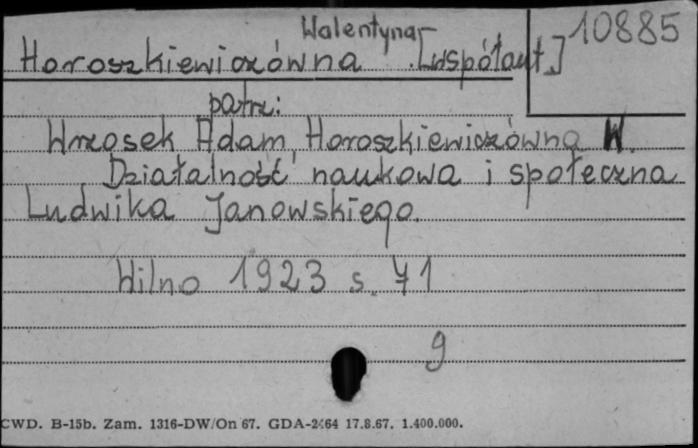 Walentyna
10885
Horoszkiewiczówna [współaut.]
patrz:
Wrzosek Adam, Horoszkiewiczówna W.
Działalność naukowa i społeczna
Ludwika Janowskiego.
Wilno 1923 s. 71
9
CWD. B-15b. Zam. 1316-DW/On 67. GDA-2464 17.8.67. 1.400.000.